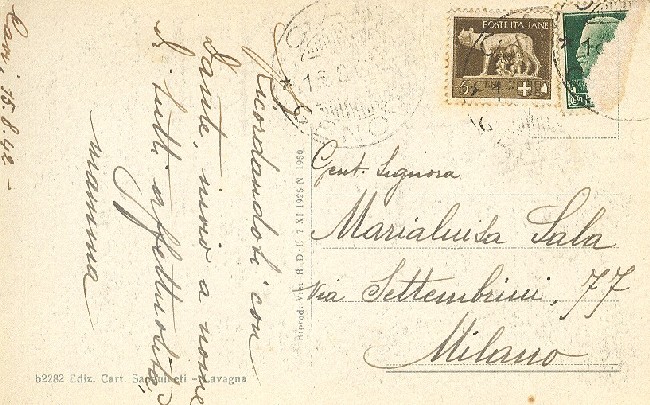 Cavi, 15.8.42 -
Ricordandoti con
Dante, invio a nome
di tutti affettuosità,
mamma
POSTE ITALIANE
Gent. Signora
Marialuisa Sala
Via Settembrini, 77
Milano
Riprod. Vie. R.D.L. 7 XI 1925 N. 1950
b2282 Ediz. Cart. Sanguineti - Lavagna